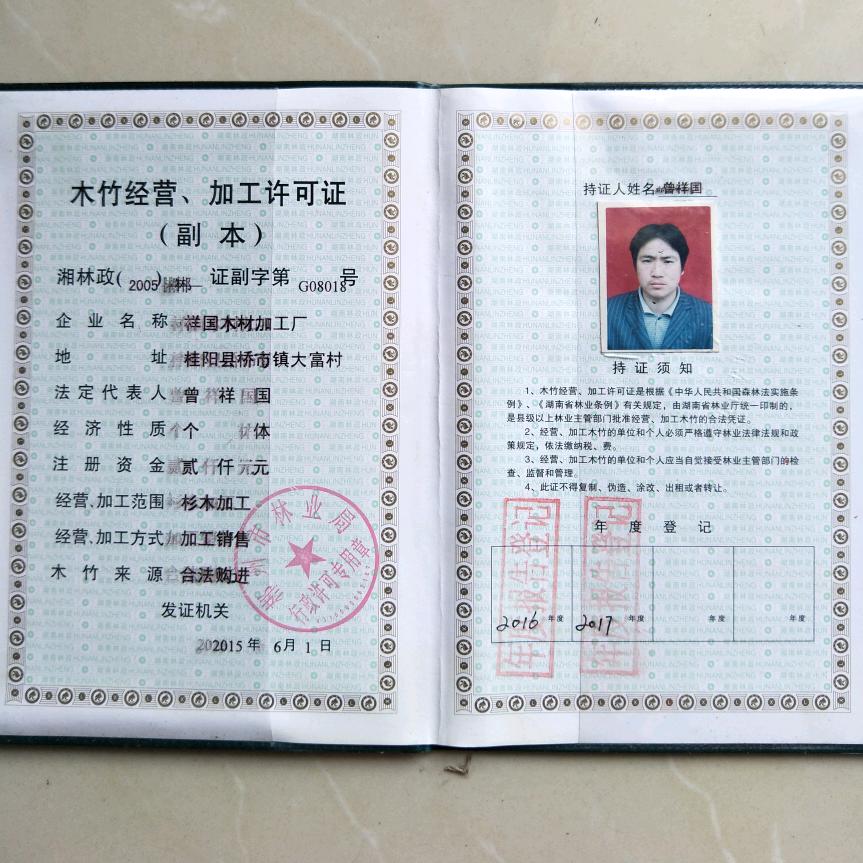 木竹经营、加工许可证
(副 本)
湘林政(2005)郴 证副字第 G08018号
企业名称 祥国木材加工厂
地 址 桂阳县桥市镇大富村
法定代表人 曾祥国
经济性质 个体
注册资金 贰仟元
经营、加工范围 杉木加工
经营、加工方式 加工销售
木竹来源 合法购进
发证机关
2015年 6月 1日
林业局
行政许可专用章
持证人姓名 曾祥国
持证须知
1、木竹经营、加工许可证是根据《中华人民共和国森林法实施条
例》、《湖南省林业条例》有关规定，由湖南省林业厅统一印制的，
是县级以上林业主管部门批准经营、加工木竹的合法凭证。
2、经营、加工木竹的单位和个人必须严格遵守林业法律法规和政
策规定，依法缴纳税、费。
3、经营、加工木竹的单位和个人应当自觉接受林业主管部门的检
查、监督和管理。
4、此证不得复制、伪造、涂改、出租或者转让。
年度登记
2016 年度 2017 年度 年度 年度
年度报告登记
年度报告登记